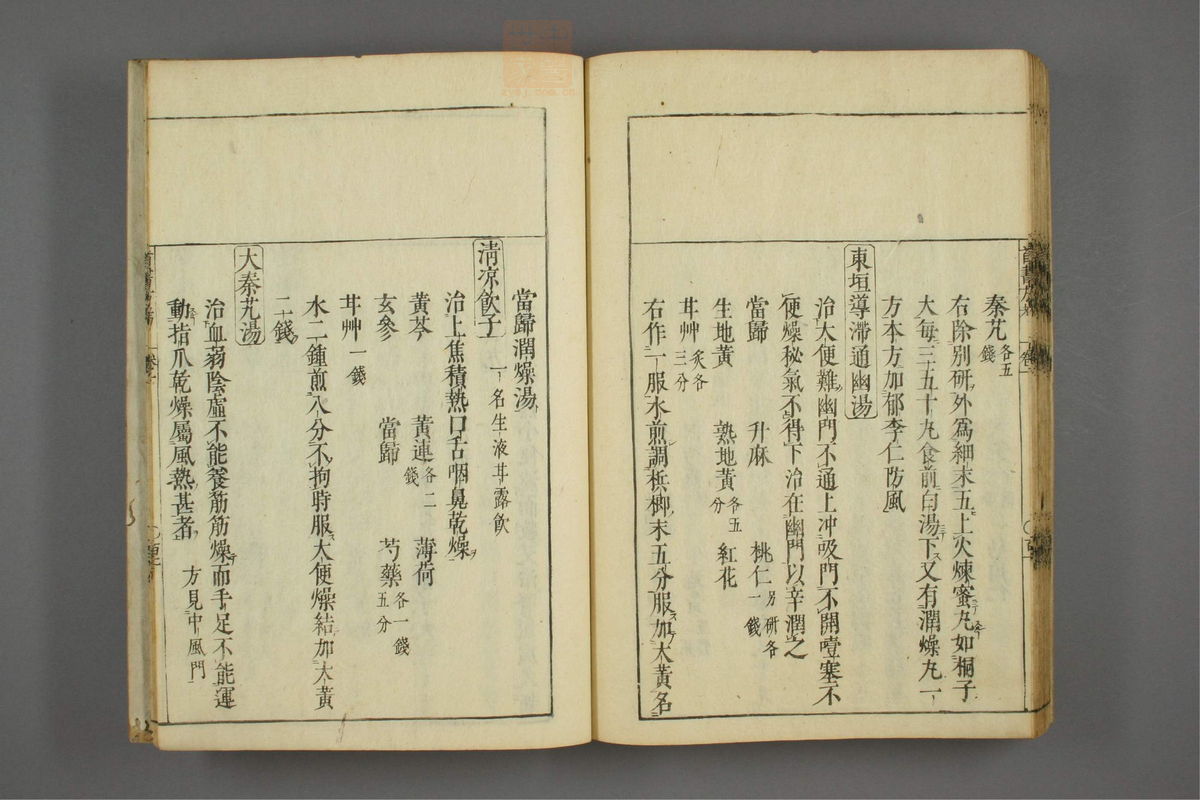 秦艽各五錢
右除別研外爲細末五上火煉蜜丸如桐子
大每三五十丸食前白湯下又有潤燥丸一
方本方加郁李仁防風
東垣導滯通幽湯
治大便難幽門不通上冲吸門不開噎塞不
便燥秘氣不得下治在幽門以辛潤之
當歸 升麻 桃仁另研各一錢
生地黃 熟地黃各五分 紅花
甘艸炙各三分
右作一服水煎調梹榔末五分服加大黃名
當歸潤燥湯
清凉飲子 一名生液甘露飲
治上焦積熱口舌咽鼻乾燥
黃芩 黃連各二錢 薄荷
玄參 當歸 芍藥各一錢五分
甘艸一錢
水二鍾煎八分不拘時服大便燥結加大黃
二錢
大秦艽湯
治血弱陰虛不能養筋筋燥而手足不能運
動指爪乾燥屬風熱甚者 方見中風門